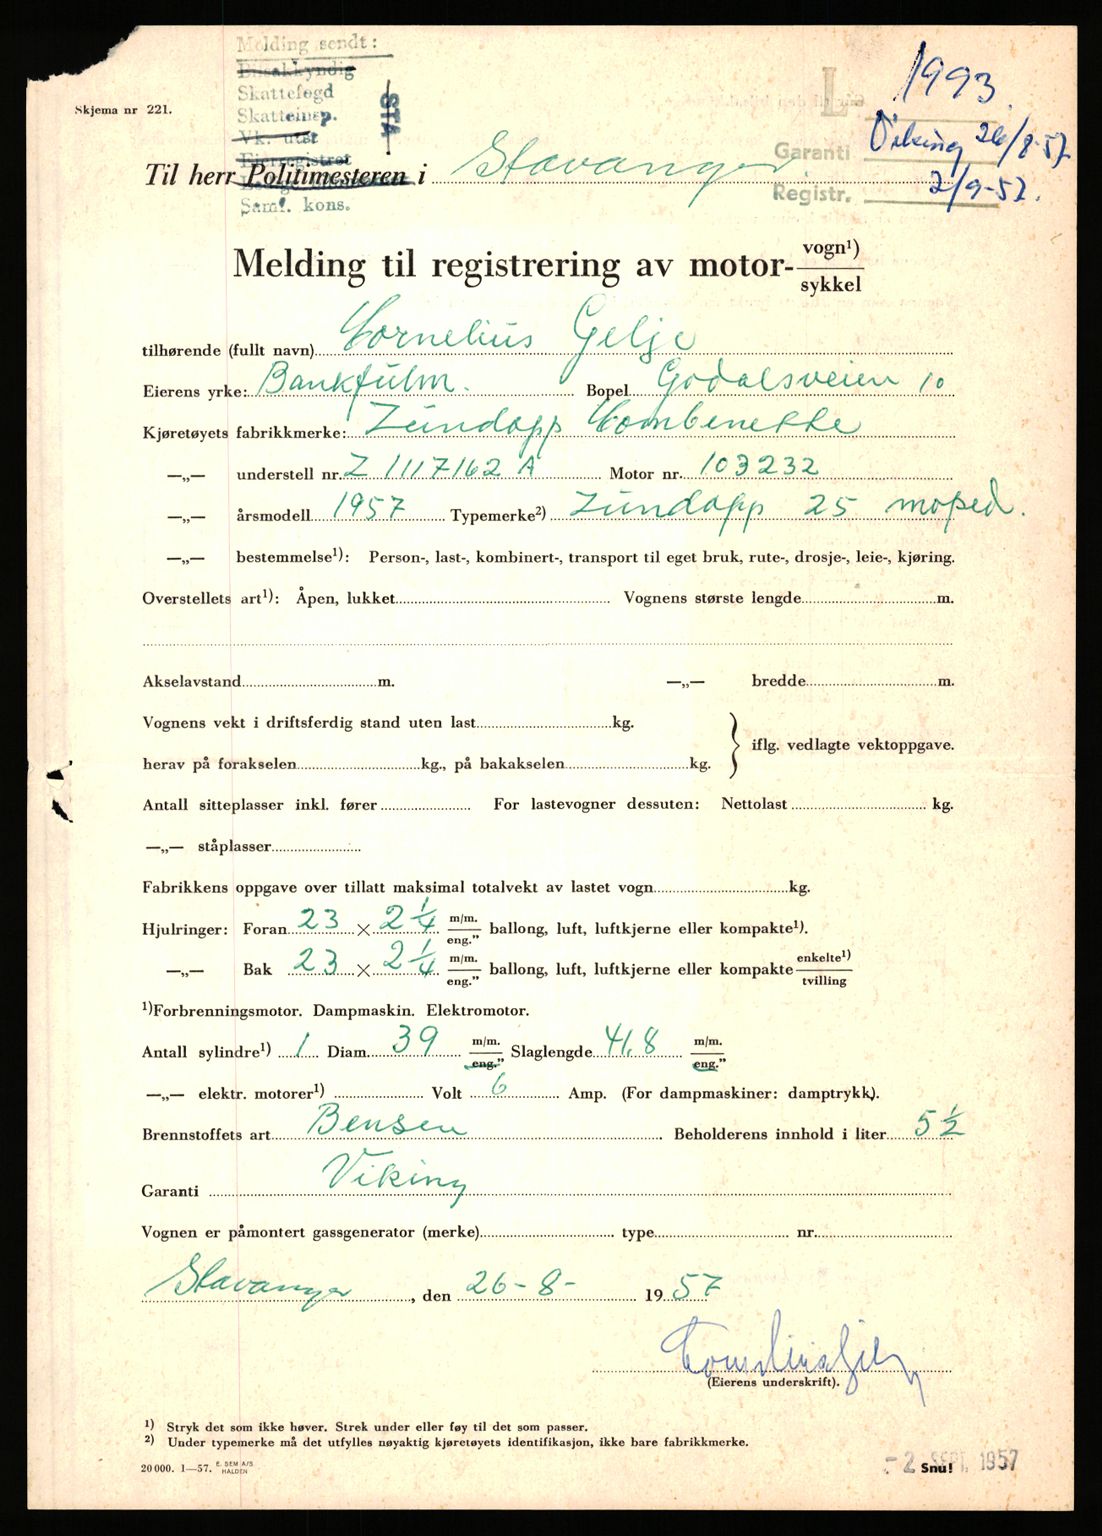 Melding sendt:
Bilsakkyndig
Skattefogd
Skatteinsp.
Vk. utst
Eierregistret
Samf. kons.
STA
L 1993
Garanti Viking 26/8-57
Registr. 2/9-57.
Skjema nr 221.
Til herr Politimesteren i Stavanger.
Melding til registrering av motor-vogn¹)
sykkel
tilhørende (fullt navn) Cornelius Gelje
Eierens yrke: Bankfulm. Bopel Godalsveien 10
Kjøretøyets fabrikkmerke: Zündapp Combinette
—„— understell nr. Z 1117162 A Motor nr. 103232
—„— årsmodell 1957 Typemerke²) Zündapp 25 moped.
—„— bestemmelse¹): Person-, last-, kombinert-, transport til eget bruk, rute-, drosje-, leie-, kjøring.
Overstellets art¹): Åpen, lukket Vognens største lengde m.
Akselavstand m. —„— bredde m.
Vognens vekt i driftsferdig stand uten last kg.
iflg. vedlagte vektoppgave.
herav på forakselen kg., på bakakselen kg.
Antall sitteplasser inkl. fører For lastevogner dessuten: Nettolast kg.
—„— ståplasser
Fabrikkens oppgave over tillatt maksimal totalvekt av lastet vogn kg.
Hjulringer: Foran 23 × 2 1/4 m/m. eng.” ballong, luft, luftkjerne eller kompakte¹).
—„— Bak 23 × 2 1/4 m/m. eng.” ballong, luft, luftkjerne eller kompakte enkelte¹) tvilling
¹)Forbrenningsmotor. Dampmaskin. Elektromotor.
Antall sylindre¹) 1 Diam. 39 m/m. eng.” Slaglengde 41,8 m/m. eng.”
—„— elektr. motorer¹) Volt 6 Amp. (For dampmaskiner: damptrykk).
Brennstoffets art Bensen Beholderens innhold i liter 5 1/2
Garanti Viking
Vognen er påmontert gassgenerator (merke) type nr.
Stavanger, den 26-8- 1957
(Eierens underskrift).
¹) Stryk det som ikke høver. Strek under eller føy til det som passer.
²) Under typemerke må det utfylles nøyaktig kjøretøyets identifikasjon, ikke bare fabrikkmerke.
20000. 1—57. E. SEM A/S HALDEN
-2 SEPT. 1957
Snu!